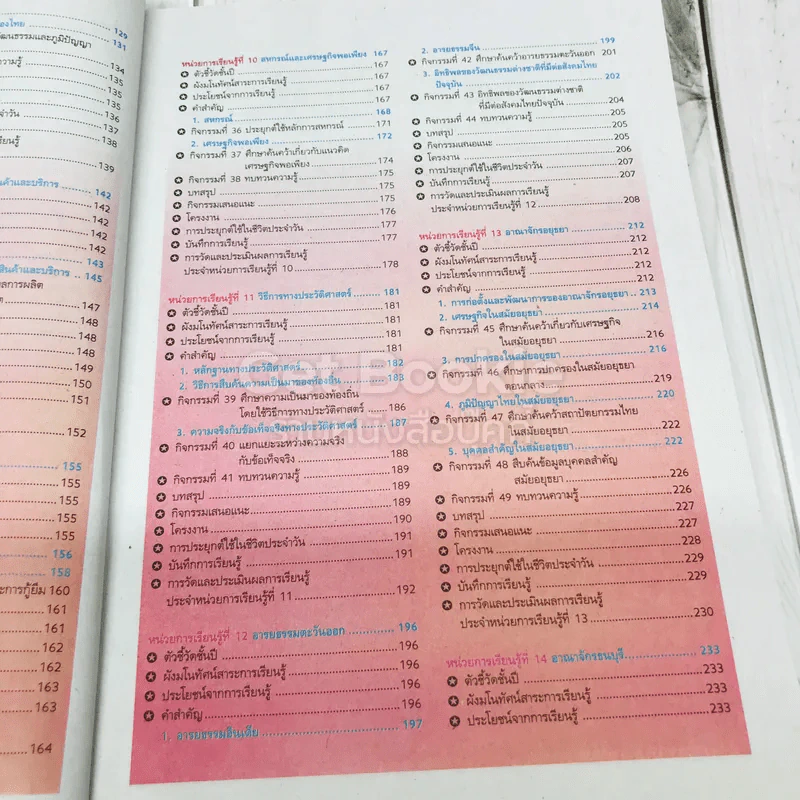 องไทย
129
วัฒนธรรมและภูมิปัญญา
131
วามรู้
134
135
135
135
136
จำวัน
137
138
นรู้
139
นค้าและบริการ 142
142
142
142
143
143
สินค้าและบริการ .. 145
ลการผลิต
147
148
148
148
149
150
151
152
155
155
155
155
155
156
158
ะการกู้ยืม 160
161
161
162
162
163
163
164
หน่วยการเรียนรู้ที่ 10 สหกรณ์และเศรษฐกิจพอเพียง 167
ตัวชี้วัดชั้นปี 167
ผังมโนทัศน์สาระการเรียนรู้ 167
ประโยชน์จากการเรียนรู้ 167
คำสำคัญ 167
1. สหกรณ์ 168
กิจกรรมที่ 36 ประยุกต์ใช้หลักการสหกรณ์ 171
2. เศรษฐกิจพอเพียง 172
กิจกรรมที่ 37 ศึกษาค้นคว้าเกี่ยวกับแนวคิด
เศรษฐกิจพอเพียง 174
กิจกรรมที่ 38 ทบทวนความรู้ 175
บทสรุป 175
กิจกรรมเสนอแนะ 175
โครงงาน 176
การประยุกต์ใช้ในชีวิตประจำวัน 177
บันทึกการเรียนรู้ 177
การวัดและประเมินผลการเรียนรู้
ประจำหน่วยการเรียนรู้ที่ 10 178
หน่วยการเรียนรู้ที่ 11 วิธีการทางประวัติศาสตร์ 181
ตัวชี้วัดชั้นปี 181
ผังมโนทัศน์สาระการเรียนรู้ 181
ประโยชน์จากการเรียนรู้ 181
คำสำคัญ 181
1. หลักฐานทางประวัติศาสตร์ 182
2. วิธีการสืบค้นความเป็นมาของท้องถิ่น 183
กิจกรรมที่ 39 ศึกษาความเป็นมาของท้องถิ่น
โดยใช้วิธีการทางประวัติศาสตร์ 186
3. ความจริงกับข้อเท็จจริงทางประวัติศาสตร์ 187
กิจกรรมที่ 40 แยกแยะระหว่างความจริง
กับข้อเท็จจริง 188
กิจกรรมที่ 41 ทบทวนความรู้ 189
บทสรุป 189
กิจกรรมเสนอแนะ 189
โครงงาน 190
การประยุกต์ใช้ในชีวิตประจำวัน 191
บันทึกการเรียนรู้ 191
การวัดและประเมินผลการเรียนรู้
ประจำหน่วยการเรียนรู้ที่ 11 192
หน่วยการเรียนรู้ที่ 12 อารยธรรมตะวันออก 196
ตัวชี้วัดชั้นปี 196
ผังมโนทัศน์สาระการเรียนรู้ 196
ประโยชน์จากการเรียนรู้ 196
คำสำคัญ 196
1. อารยธรรมอินเดีย 197
2. อารยธรรมจีน 199
กิจกรรมที่ 42 ศึกษาค้นคว้าอารยธรรมตะวันออก 201
3. อิทธิพลของวัฒนธรรมต่างชาติที่มีต่อสังคมไทย
ปัจจุบัน 202
กิจกรรมที่ 43 อิทธิพลของวัฒนธรรมต่างชาติ
ที่มีต่อสังคมไทยปัจจุบัน 204
กิจกรรมที่ 44 ทบทวนความรู้ 205
บทสรุป 205
กิจกรรมเสนอแนะ 205
โครงงาน 206
การประยุกต์ใช้ในชีวิตประจำวัน 207
บันทึกการเรียนรู้ 207
การวัดและประเมินผลการเรียนรู้
ประจำหน่วยการเรียนรู้ที่ 12 208
หน่วยการเรียนรู้ที่ 13 อาณาจักรอยุธยา 212
ตัวชี้วัดชั้นปี 212
ผังมโนทัศน์สาระการเรียนรู้ 212
ประโยชน์จากการเรียนรู้ 212
คำสำคัญ 212
1. การก่อตั้งและพัฒนาการของอาณาจักรอยุธยา .. 213
2. เศรษฐกิจในสมัยอยุธยา 214
กิจกรรมที่ 45 ศึกษาค้นคว้าเกี่ยวกับเศรษฐกิจ
ในสมัยอยุธยา 216
3. การปกครองในสมัยอยุธยา 216
กิจกรรมที่ 46 ศึกษาการปกครองในสมัยอยุธยา
ตอนกลาง 219
4. ภูมิปัญญาไทยในสมัยอยุธยา 220
กิจกรรมที่ 47 ศึกษาค้นคว้าสถาปัตยกรรมไทย
ในสมัยอยุธยา 222
5. บุคคลสำคัญในสมัยอยุธยา 222
กิจกรรมที่ 48 สืบค้นข้อมูลบุคคลสำคัญ
สมัยอยุธยา 226
กิจกรรมที่ 49 ทบทวนความรู้ 226
บทสรุป 227
กิจกรรมเสนอแนะ 227
โครงงาน 228
การประยุกต์ใช้ในชีวิตประจำวัน 229
บันทึกการเรียนรู้ 229
การวัดและประเมินผลการเรียนรู้
ประจำหน่วยการเรียนรู้ที่ 13 230
หน่วยการเรียนรู้ที่ 14 อาณาจักรธนบุรี 233
ตัวชี้วัดชั้นปี 233
ผังมโนทัศน์สาระการเรียนรู้ 233
ประโยชน์จากการเรียนรู้ 233